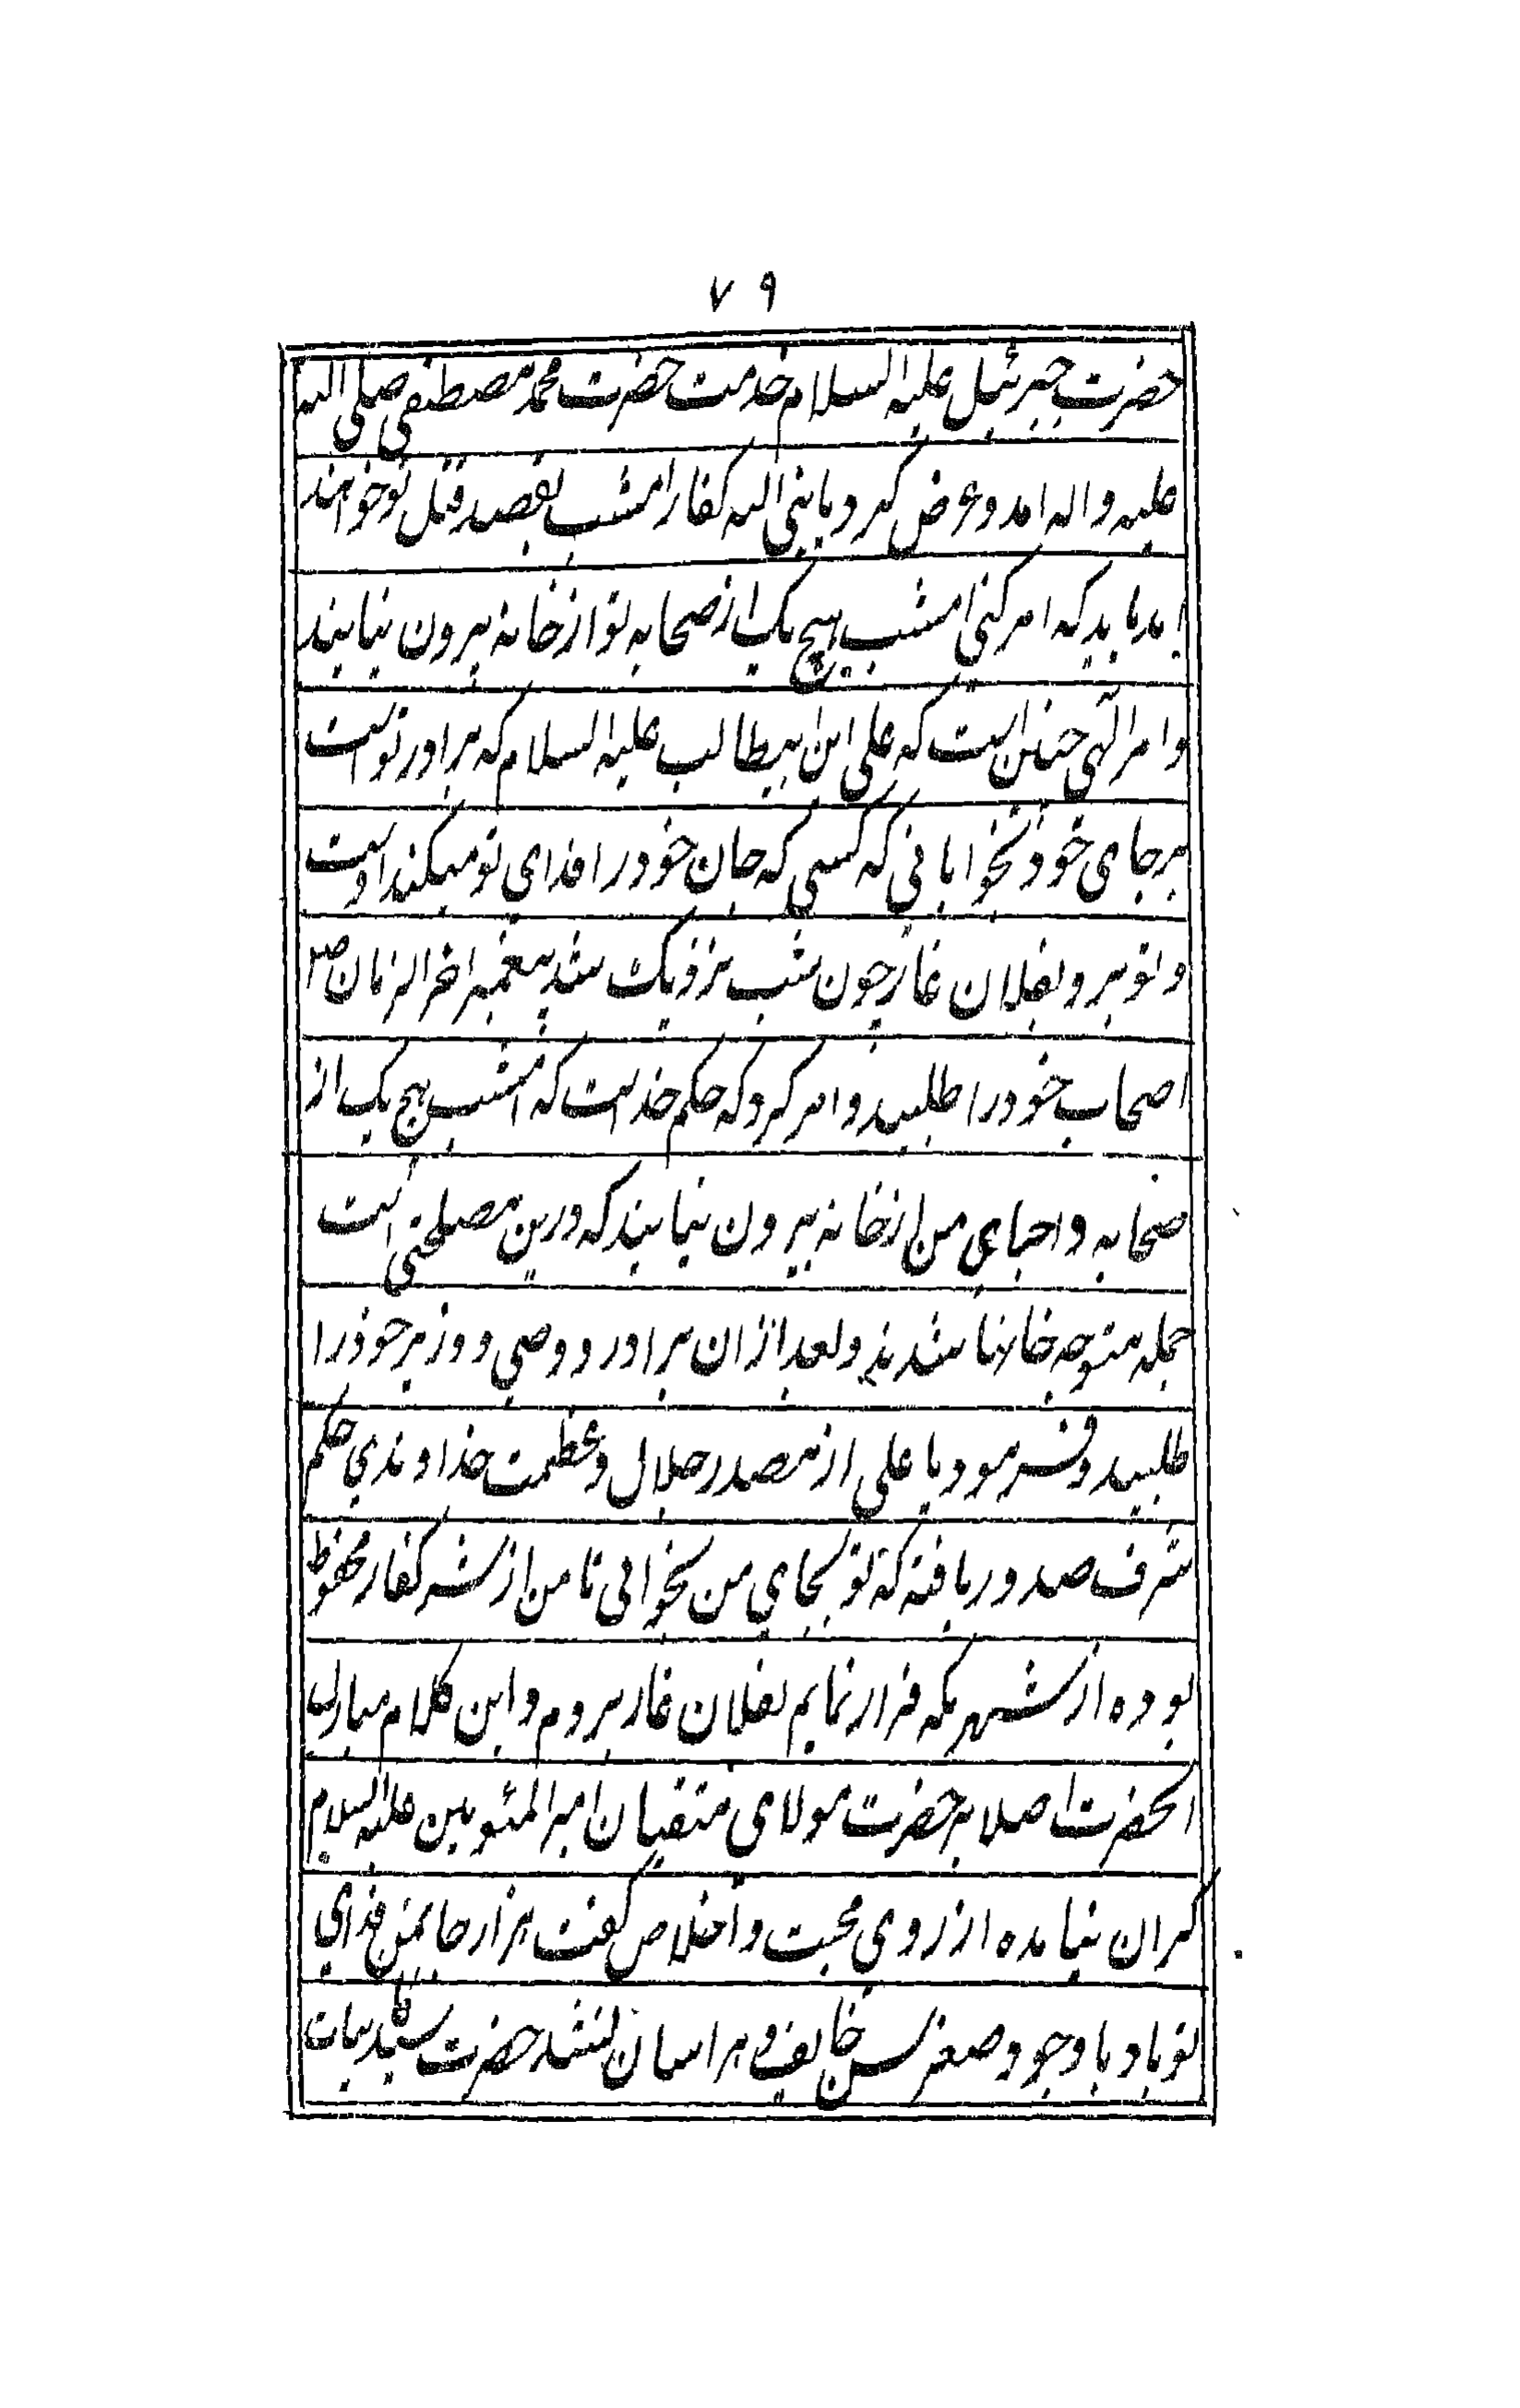 ٧٩
حضرت جبرئیل علیه السلام خدمت حضرت محمد مصطفی صلی الله
علیه واله امد وعرض کرد یا نبی الله کفار امشب بقصد قتل تو خواهند
امد باید که امر کنی امشب هیچ یک از صحابه تو از خانه بیرون نیایند
وامر الهی چنین است که علی ابن ابیطالب علیه السلام که برادر تو است
برجای خود بخوابانی که کسی که جان خود را فدای تو میکند اوست
وتو برو بفلان غار چون شب نزدیک شد پیغمبر اخر الزمان ص
اصحاب خود را طلبید وامر کرد که حکم خداست که امشب هیچ یک از
صحابه واحبای من از خانه بیرون نیایند که درین مصلحتی است
جمله متوجه خانها شدند وبعد ازان برادر ووصی ووزیر خود را
طلبید وفرمود یا علی از مصدر جلال وعظمت خداوندی حکم
شرف صدور یافته که تو بجای من بخوابی تا من از شر کفار محفوظ
بوده از شهر مکه فرار نمایم بفلان غار بروم واین کلام مبارک
انحضرت اصلا بر حضرت مولای متقیان امیر المئومنین علیه السلام
گران نیامده از روی محبت واخلاص گفت هزار جان من فدای
تو باد با وجود صغر سن خایف وهراسان نشد حضرت سید کاینات